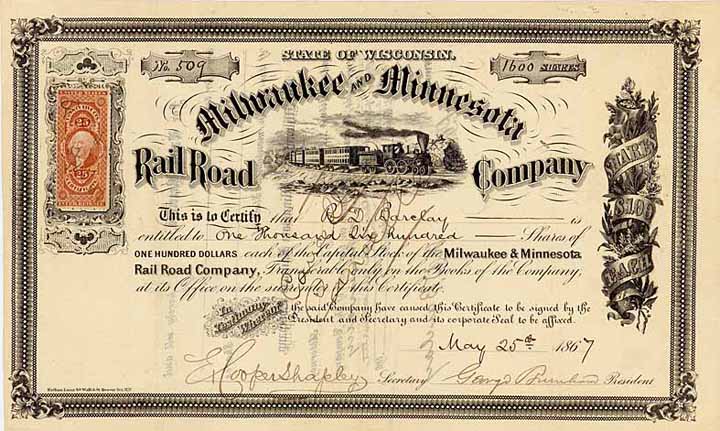 STATE OF WISCONSIN.
No. 509
1600 SHARES
Milwaukee AND Minnesota
Rail Road Company
25 25
SHARES
$100
EACH
This is to Certify that R. D. Barclay is
entitled to One Thousand Six Hundred Shares of
ONE HUNDRED DOLLARS each of the Capital Stock of the Milwaukee & Minnesota
Rail Road Company, Transferable only on the Books of the Company,
at its Office on the surrender of this Certificate.
In Testimony Whereof the said Company have caused this Certificate to be signed by the
President and Secretary and its corporate Seal to be affixed.
May 25th 1867
E. Cooper Shapley Secretary George Burnham President